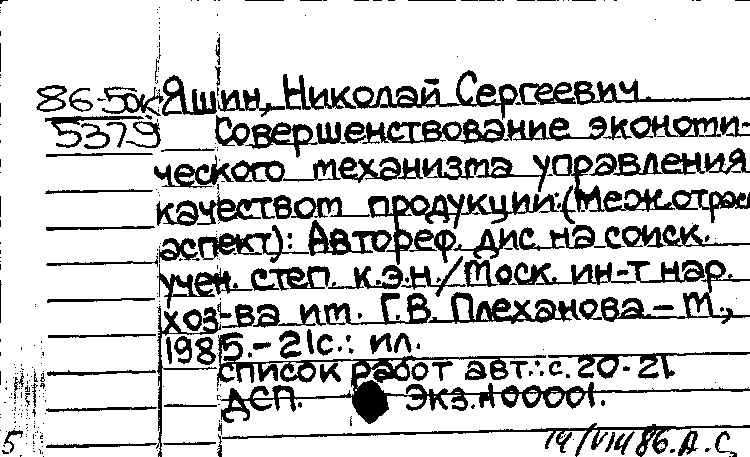 86-50к Яшин, Николай Сергеевич.
5379 Совершенствование экономи-
ческого механизма управления
качеством продукции: (Меж.отрасл
аспект): Автореф. дис. на соиск.
учен. степ. к.э.н./Моск. ин-т нар.
хоз-ва им. Г.В. Плеханова. – М.,
1985. – 21с.: ил.
список работ авт.: с. 20-21
ДСП. Экз.N00001.
5 14/VIII 86. А. С